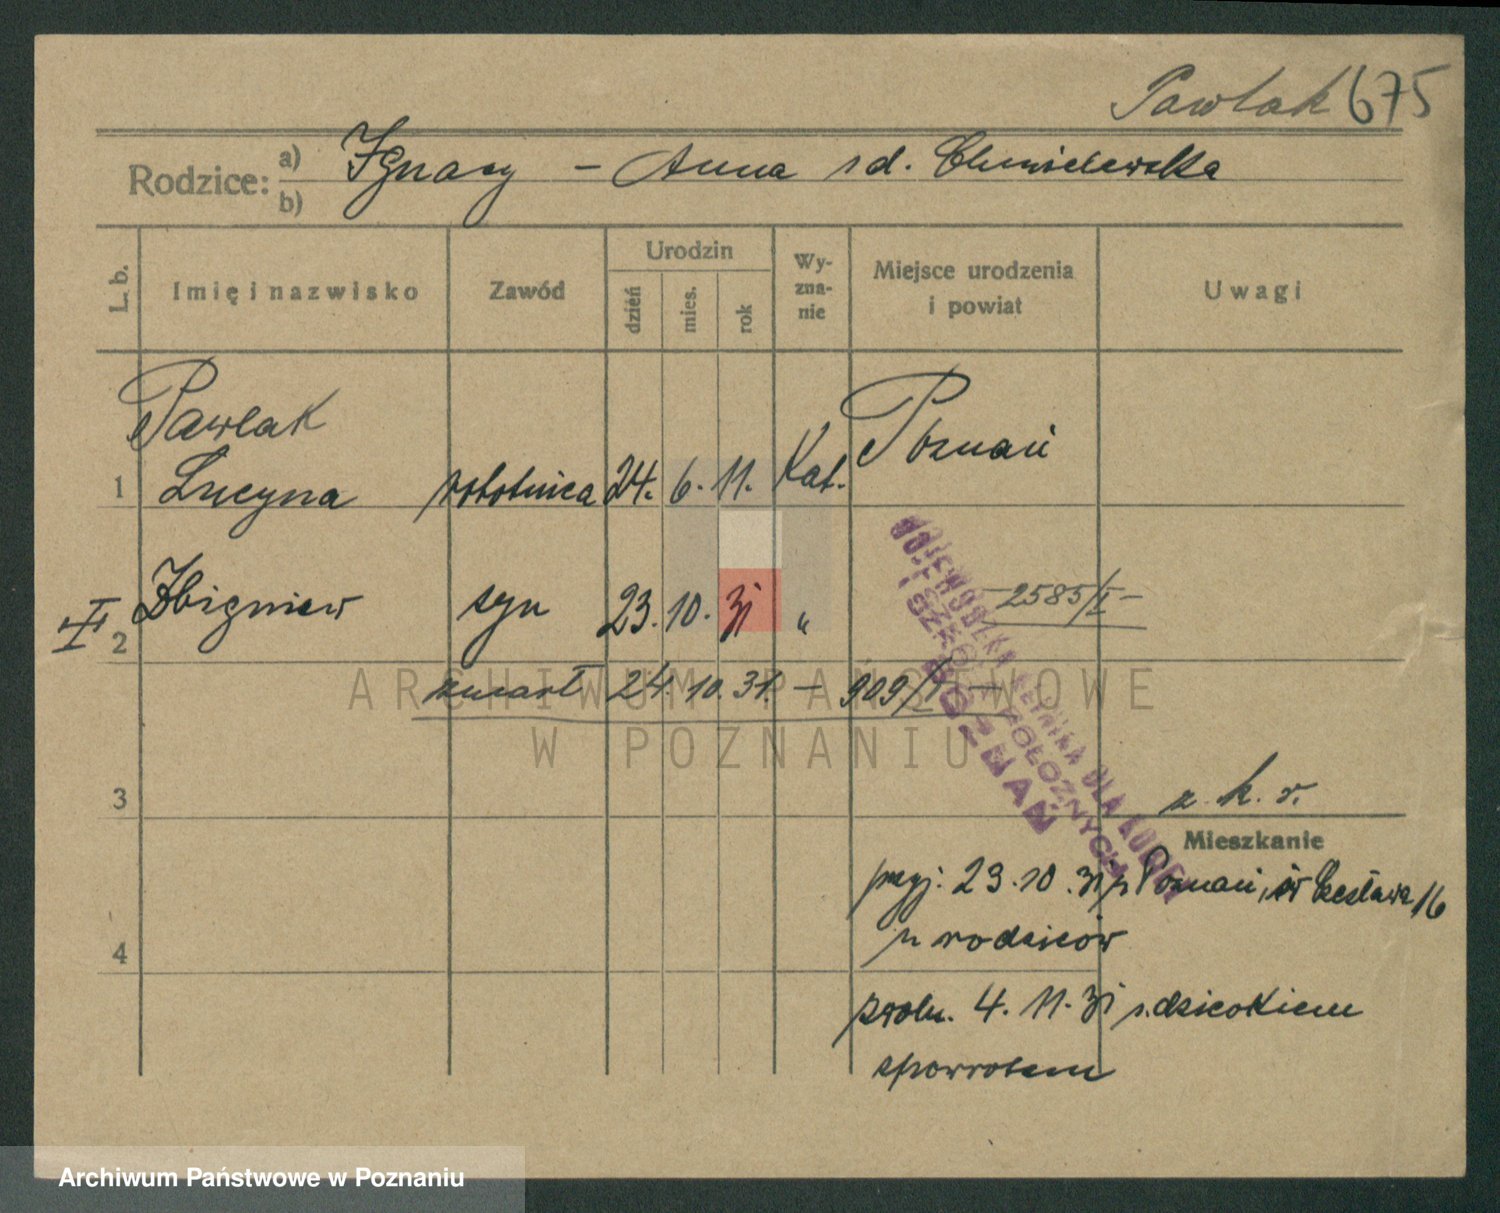 Pawlak 675
Rodzice: a) Ignacy – Anna z d. Chmielewska
b)
L. b.
Imię i nazwisko
Zawód
Urodzin
dzień
mies.
rok
Wy-
zna-
nie
Miejsce urodzenia
i powiat
Uwagi
Pawlak
1 Lucyna robotnica 24. 6. 11. Kat. Poznań
2 Zbigniew syn 23. 10. 31 „ – 2585/I –
zmarł 24. 10. 31. – 909/I –
WOJEWÓDZKA KLINIKA DLA KOBIET
I SZKOŁA POŁOŻNYCH
POZNAŃ
ARCHIWUM PAŃSTWOWE
W POZNANIU
3
z. k. r.
Mieszkanie
przyj. 23.10.31 z Poznań, św Czesława 16
4
u rodziców
zwoln. 4. 11. 31 z dzieckiem
zpowrotem
Archiwum Państwowe w Poznaniu